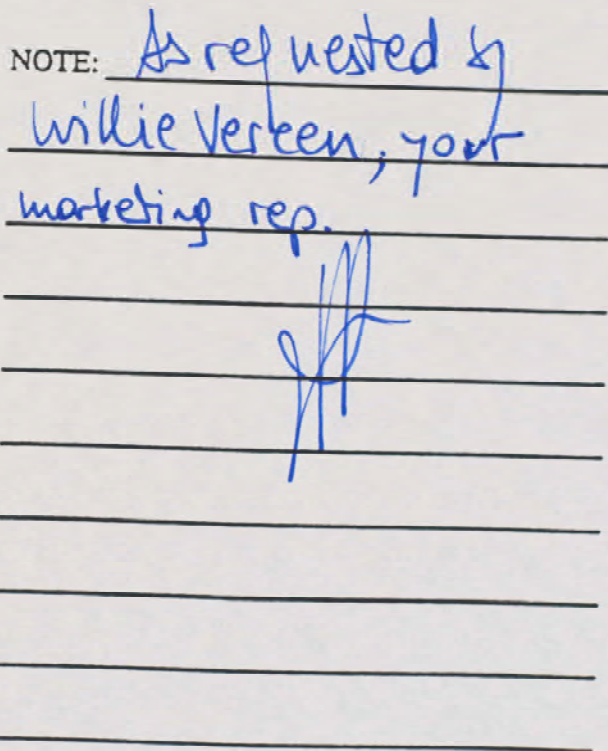 NOTE: As requested by
Willie Vereen, your
marketing rep.